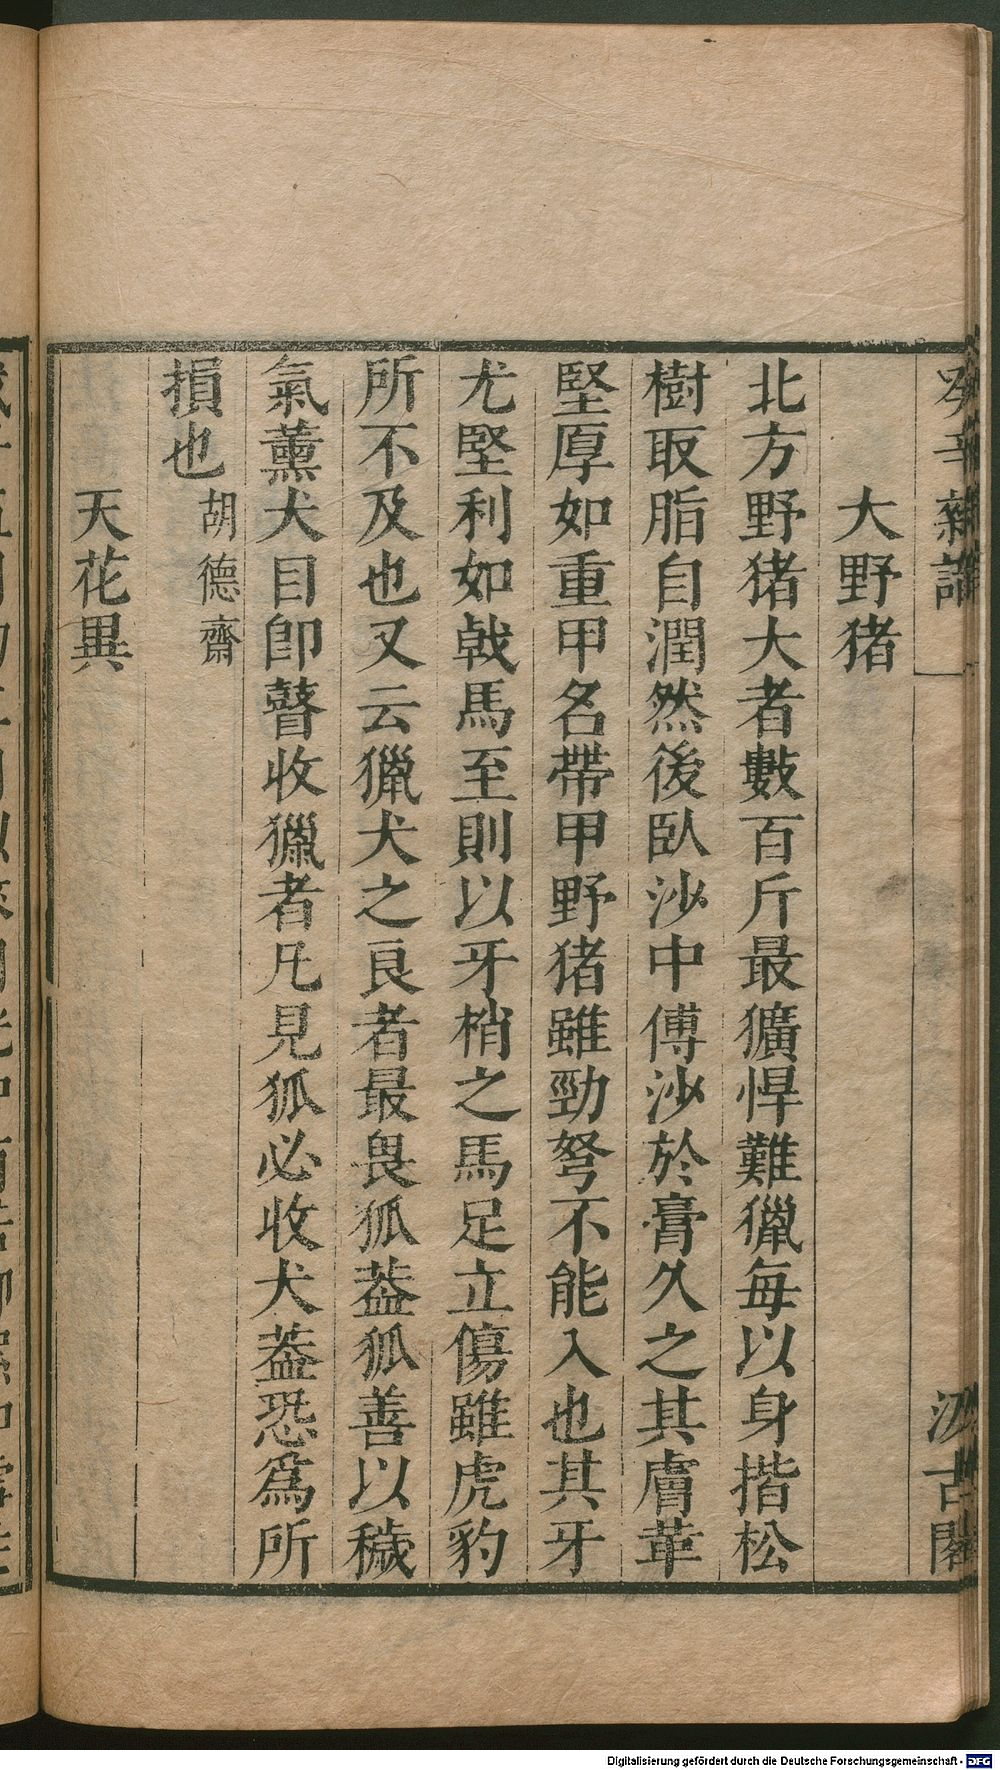 癸辛雜識
汲古閣
大野猪
北方野猪大者數百斤最獷悍難獵每以身揩松
樹取脂自潤然後臥沙中傅沙於膏久之其膚革
堅厚如重甲名帶甲野猪雖勁弩不能入也其牙
尤堅利如戟馬至則以牙梢之馬足立傷雖虎豹
所不及也又云獵犬之良者最畏狐葢狐善以穢
氣薰犬目即瞽收獵者凡見狐必收犬葢恐爲所
損也
胡德齋
天花異
Digitalisierung gefördert durch die Deutsche Forschungsgemeinschaft - DFG